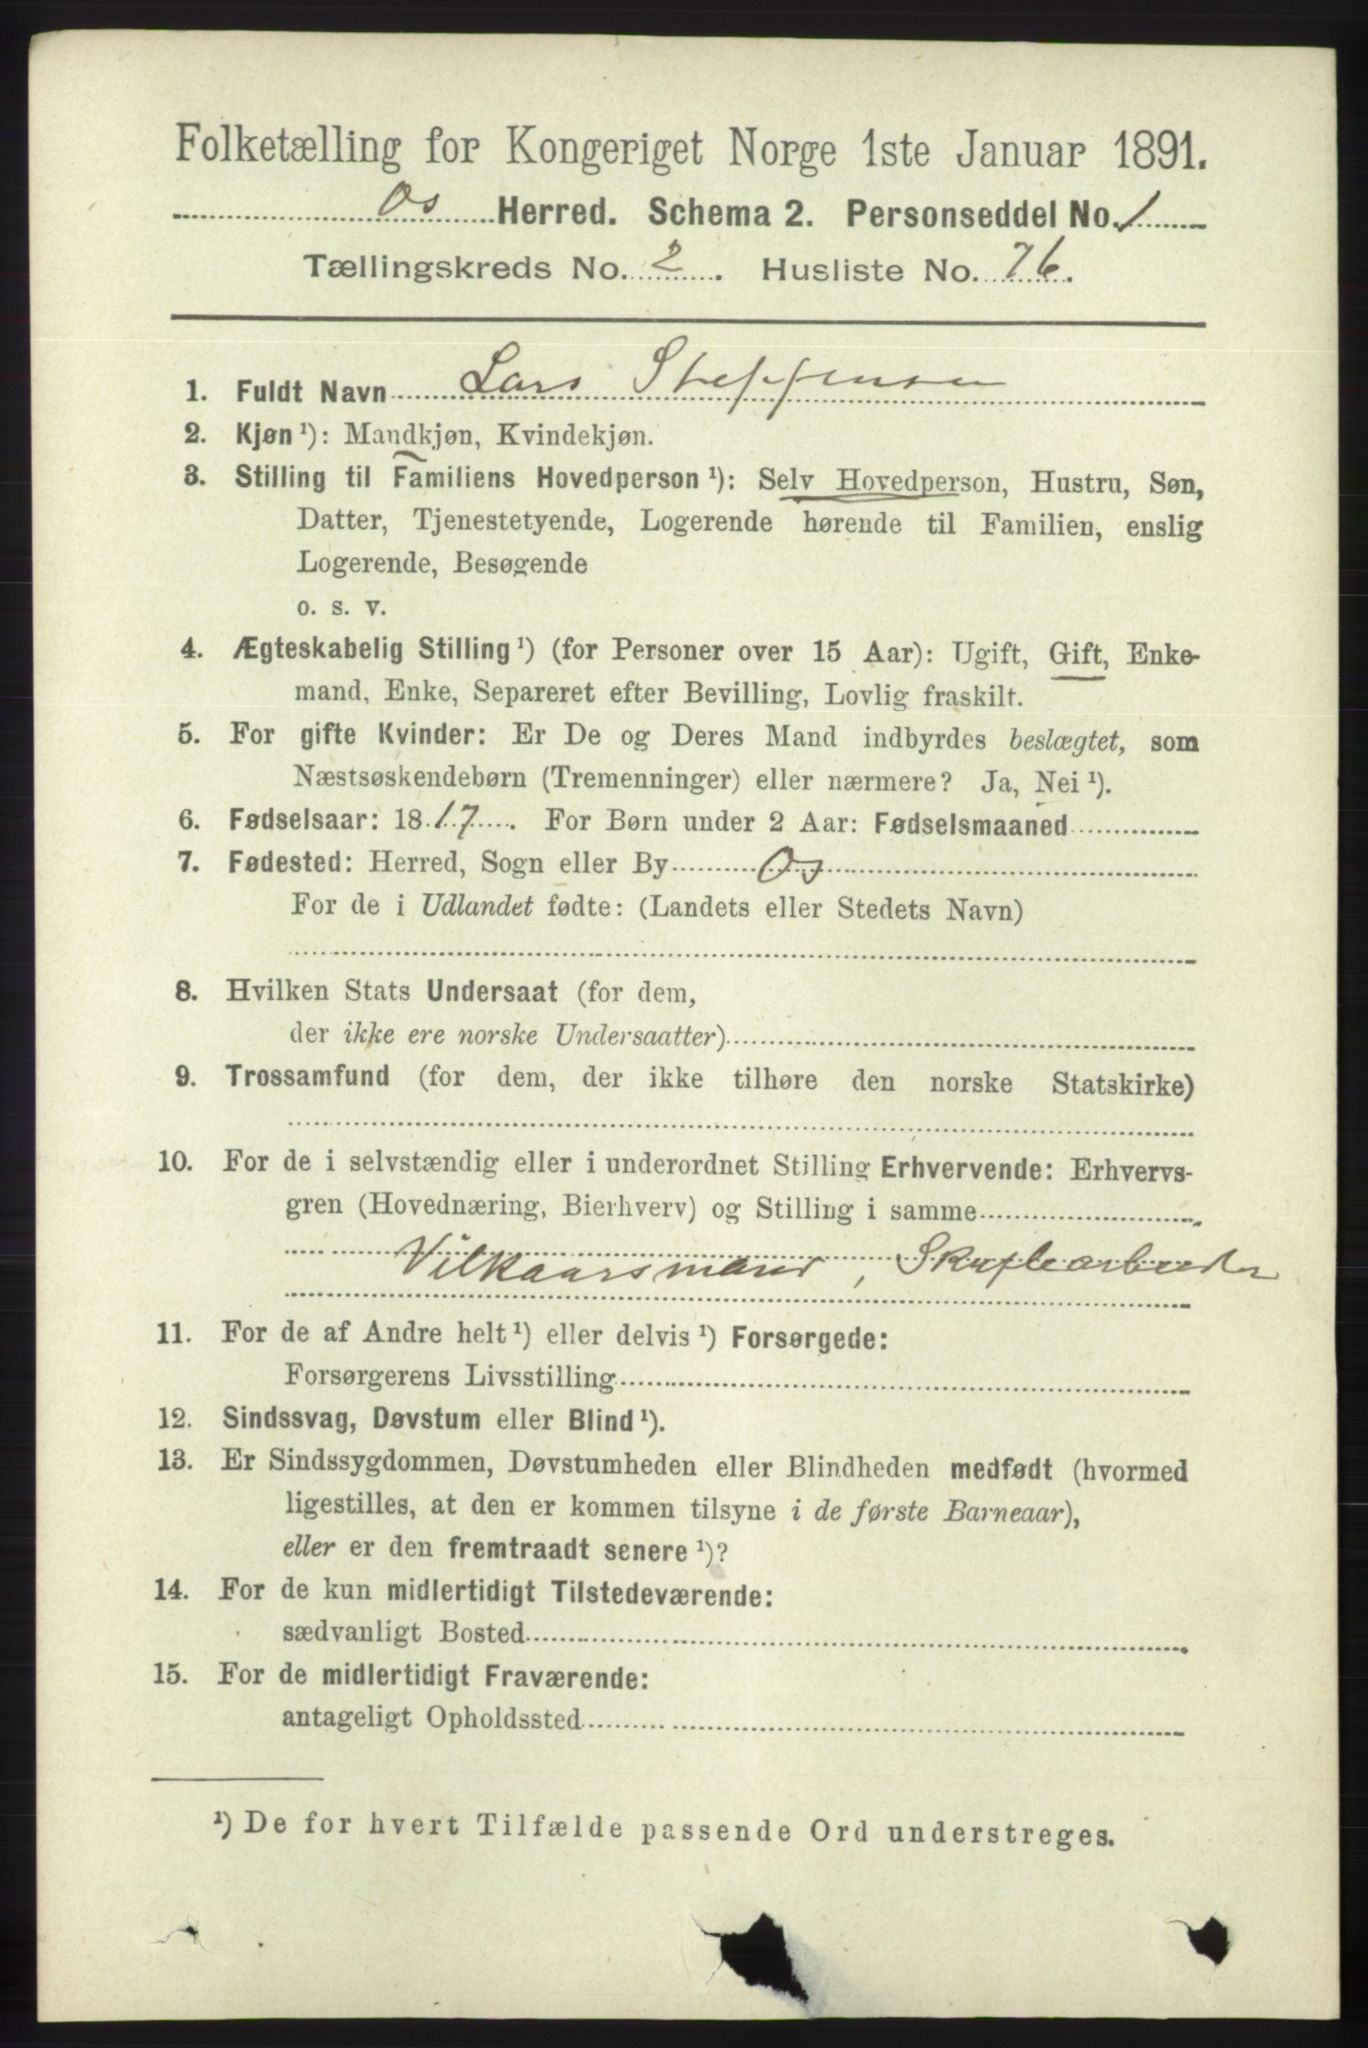 Folketælling for Kongeriget Norge 1ste Januar 1891.
Os Herred. Schema 2. Personseddel No. 1
Tællingskreds No. 2. Husliste No. 76.
1. Fuldt Navn Lars Steffensen
2. Kjøn ¹): Mandkjøn, Kvindekjøn.
3. Stilling til Familiens Hovedperson ¹): Selv Hovedperson, Hustru, Søn,
Datter, Tjenestetyende, Logerende hørende til Familien, enslig
Logerende, Besøgende
o. s. v.
4. Ægteskabelig Stilling ¹) (for Personer over 15 Aar): Ugift, Gift, Enke-
mand, Enke, Separeret efter Bevilling, Lovlig fraskilt.
5. For gifte Kvinder: Er De og Deres Mand indbyrdes beslægtet, som
Næstsøskendebørn (Tremenninger) eller nærmere? Ja, Nei ¹).
6. Fødselsaar: 1817. For Børn under 2 Aar: Fødselsmaaned
7. Fødested: Herred, Sogn eller By Os
For de i Udlandet fødte: (Landets eller Stedets Navn)
8. Hvilken Stats Undersaat (for dem,
der ikke ere norske Undersaatter)
9. Trossamfund (for dem, der ikke tilhøre den norske Statskirke)
10. For de i selvstændig eller i underordnet Stilling Erhvervende: Erhvervs-
gren (Hovednæring, Bierhverv) og Stilling i samme
Vilkaarsmand,
11. For de af Andre helt ¹) eller delvis ¹) Forsørgede:
Forsørgerens Livsstilling
12. Sindssvag, Døvstum eller Blind ¹).
13. Er Sindssygdommen, Døvstumheden eller Blindheden medfødt (hvormed
ligestilles, at den er kommen tilsyne i de første Barneaar),
eller er den fremtraadt senere ¹)?
14. For de kun midlertidigt Tilstedeværende:
sædvanligt Bosted
15. For de midlertidigt Fraværende:
antageligt Opholdssted
¹) De for hvert Tilfælde passende Ord understreges.